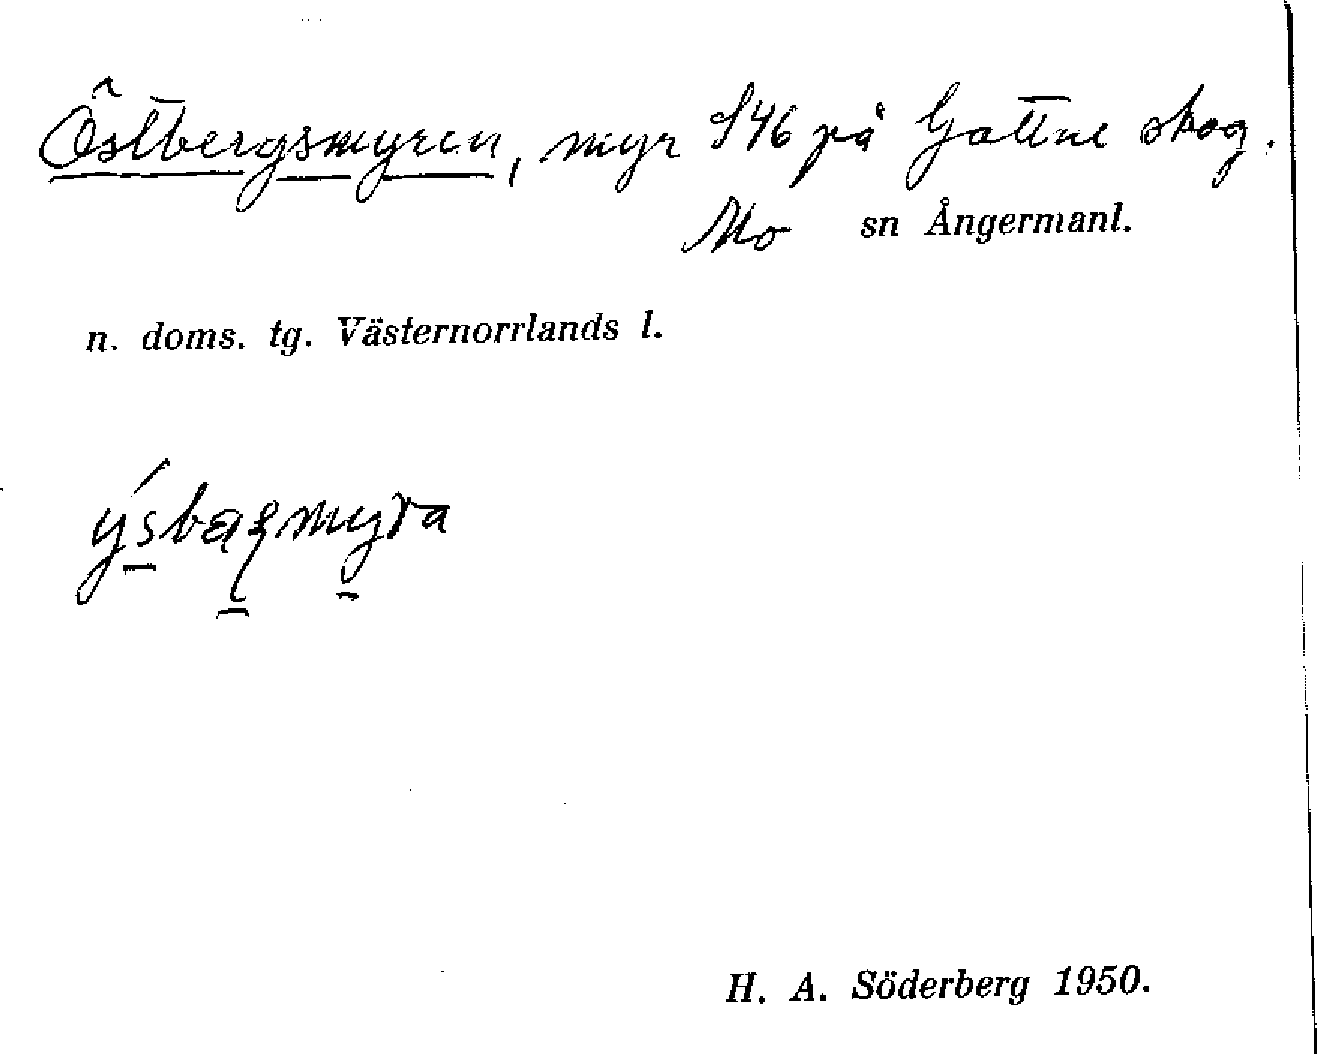 Östbergsmyren, myr S46 på Gottne skog.
Mo sn Ångermanl.
n. doms. tg. Västernorrlands l.
H. A. Söderberg 1950.